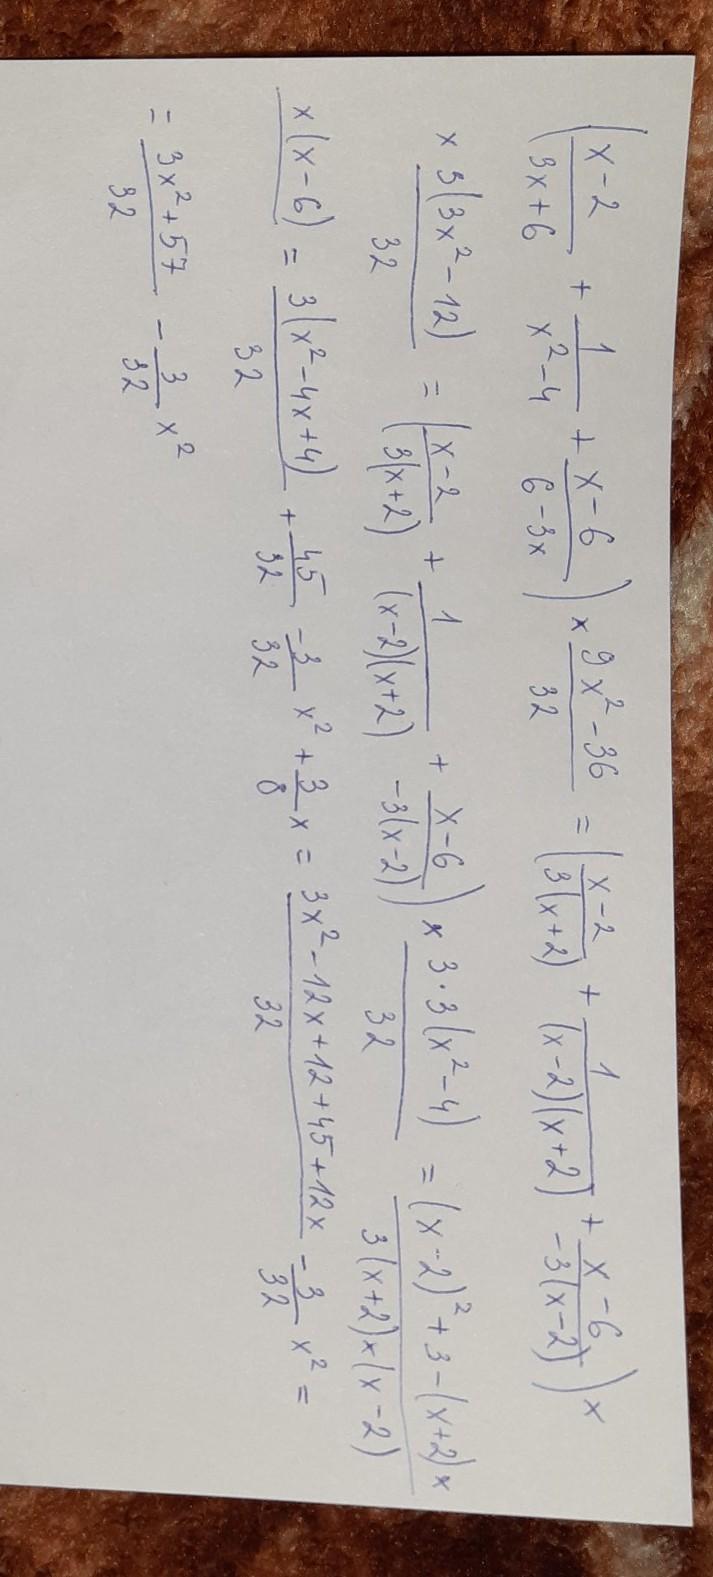 ((x-2)/(3x+6) + 1/(x²-4) + (x-6)/(6-3x)) × (9x²-36)/32 = ((x-2)/(3(x+2)) + 1/((x-2)(x+2)) + (x-6)/(-3(x-2))) ×
× 3(3x²-12)/32 = ((x-2)/(3(x+2)) + 1/((x-2)(x+2)) + (x-6)/(-3(x-2))) × 3·3(x²-4)/32 = ((x-2)²+3-(x+2)×/(3(x+2)×(x-2))
×(x-6) = 3(x²-4x+4)/32 + 45/32 -3/32 x² + 3/8 x = (3x²-12x+12+45+12x)/32 -3/32 x² =
= (3x²+57)/32 - 3/32 x²